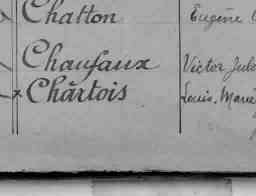 Chatton Eugène
Chaufaux Victor Jule
Chârtois Louis. Marie